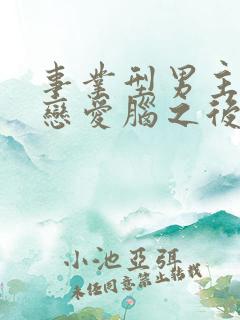 事業型男主
戀愛腦之後
小池亞弭
未经同意禁止转载